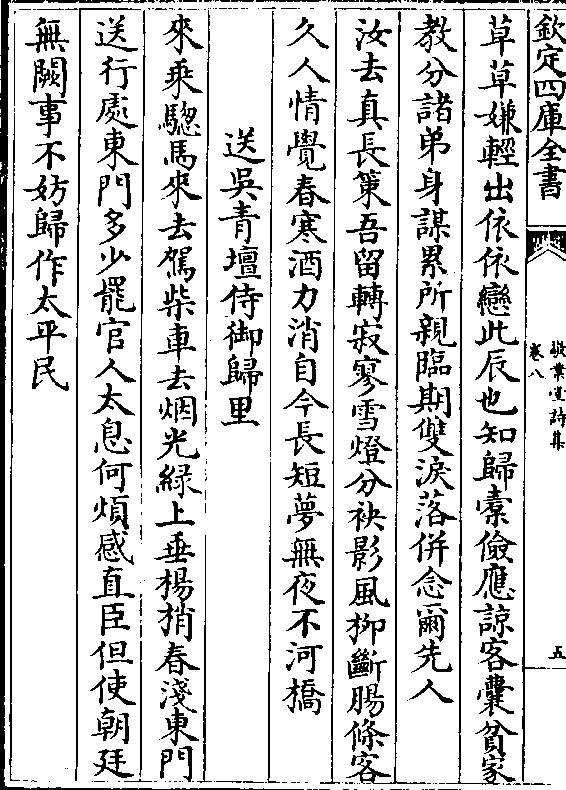 欽定四庫全書
敬業堂詩集
卷八
五
草草嫌輕出依依戀此辰也知歸橐儉應諒客囊貧家
教分諸弟身謀累所親臨期雙淚落併念爾先人
汝去真長策吾留轉寂寥雪燈分袂影風柳斷腸條客
久人情覺春寒酒力消自今長短夢無夜不河橋
送吳青壇侍御歸里
來乘驄馬來去駕柴車去烟光綠上垂楊梢春淺東門
送行處東門多少罷官人太息何煩感直臣但使朝廷
無闕事不妨歸作太平民